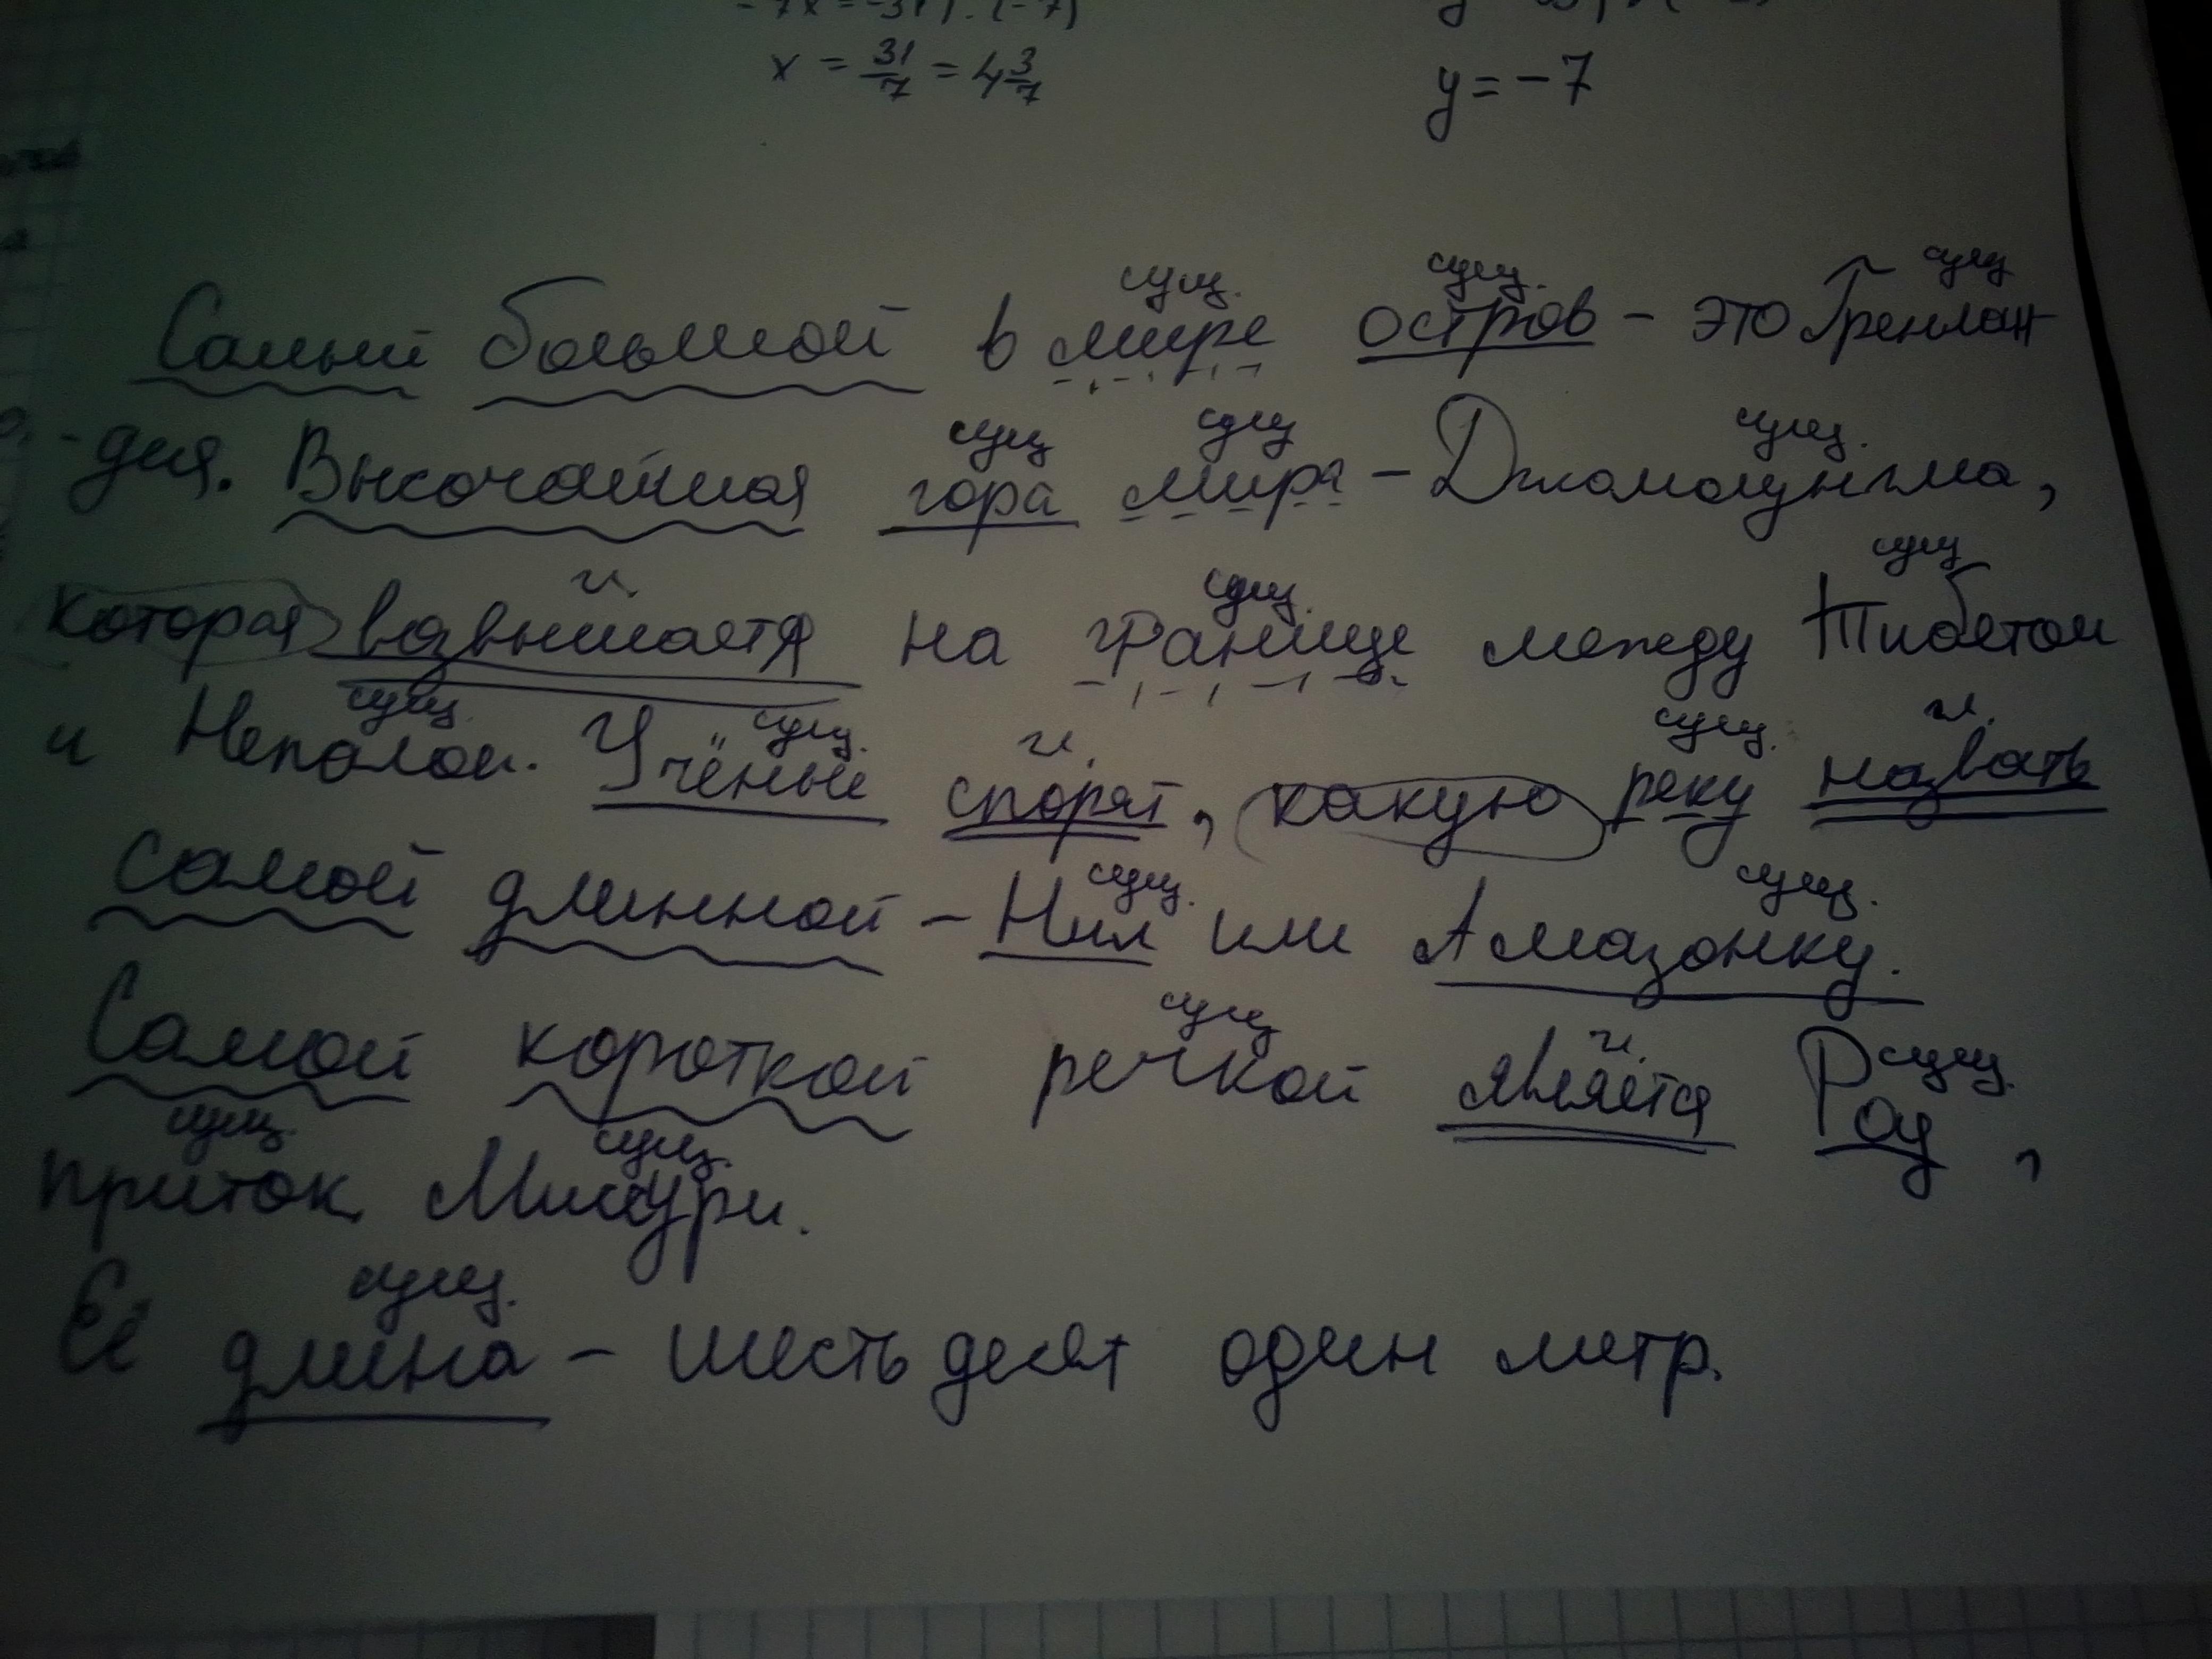 x = 31/7 = 4 3/7
y = -7
сущ. сущ. сущ
Самый большой в мире остров - это Гренлан-
сущ сущ сущ.
-дия. Высочайшая гора мира - Джомолунгма,
г. сущ. сущ
которая возвышается на границе между Тибетом
сущ. сущ. г. сущ. г.
и Непалом. Учёные спорят, какую реку назвать
сущ. сущ.
самой длинной - Нил или Амазонку.
сущ г. сущ.
Самой короткой речкой является Роу,
сущ. сущ.
приток Миссури.
сущ.
Её длина - шестьдесят один метр.